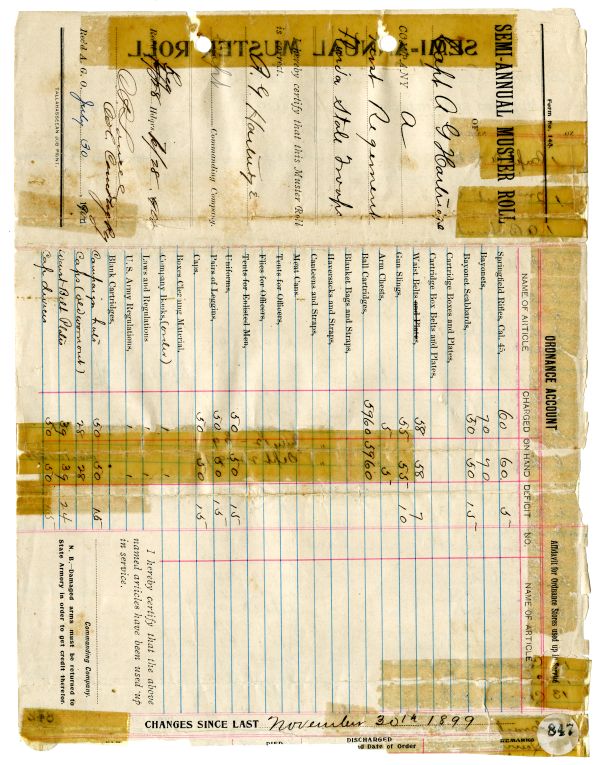 Form No. 140.
SEMI-ANNUAL MUSTER ROLL
OF
Capt A G Hartridge
COMPANY A
First Regiment
Florida State Troops
I hereby certify that this Muster Roll
is correct.
A. G. Hartridge
Commanding Company.
Rec'd A. G. O. July 30 1900
TALLAHASSEEAN JOB PRINT.
SEMI-ANNUAL MUSTER ROLL
ORDNANCE ACCOUNT
Affidavit for Ordnance Stores used up in service
NAME OF ARTICLE CHARGED ON HAND DEFICIT NO. NAME OF ARTICLE
Springfield Rifles, Cal. 45, 60 60 5
Bayonets, 70 70
Bayonet Scabbards, 50 50 15
Cartridge Boxes and Plates,
Cartridge Box Belts and Plates,
Waist Belts and Plates, 58 58 7
Gun Slings, 55 55 10
Arm Chests, 5 5
Ball Cartridges, 5960 5960
Blanket Bags and Straps,
Haversacks and Straps,
Canteens and Straps,
Meat Cans,
Tents for Officers,
Flies for Officers,
Tents for Enlisted Men,
Uniforms, 50 50 15
Pairs of Leggins, 50 50 15
Caps, 50 50 15
Boxes Cleaning Material,
Company Books, (order) 1 1
Laws and Regulations 1 1
U. S. Army Regulations, 1 1
Blank Cartridges,
Campaign hats 50 50 15
Caps (old worn out) 28 28
Waist Belt Plates 39 39 24
50 50 15
I hereby certify that the above
named articles have been used up
in service.
Commanding Company.
N. B.—Damaged arms must be returned to
State Armory in order to get credit therefor.
CHANGES SINCE LAST November 30th 1899
847
DIED
DISCHARGED
and Date of Order
REMARKS